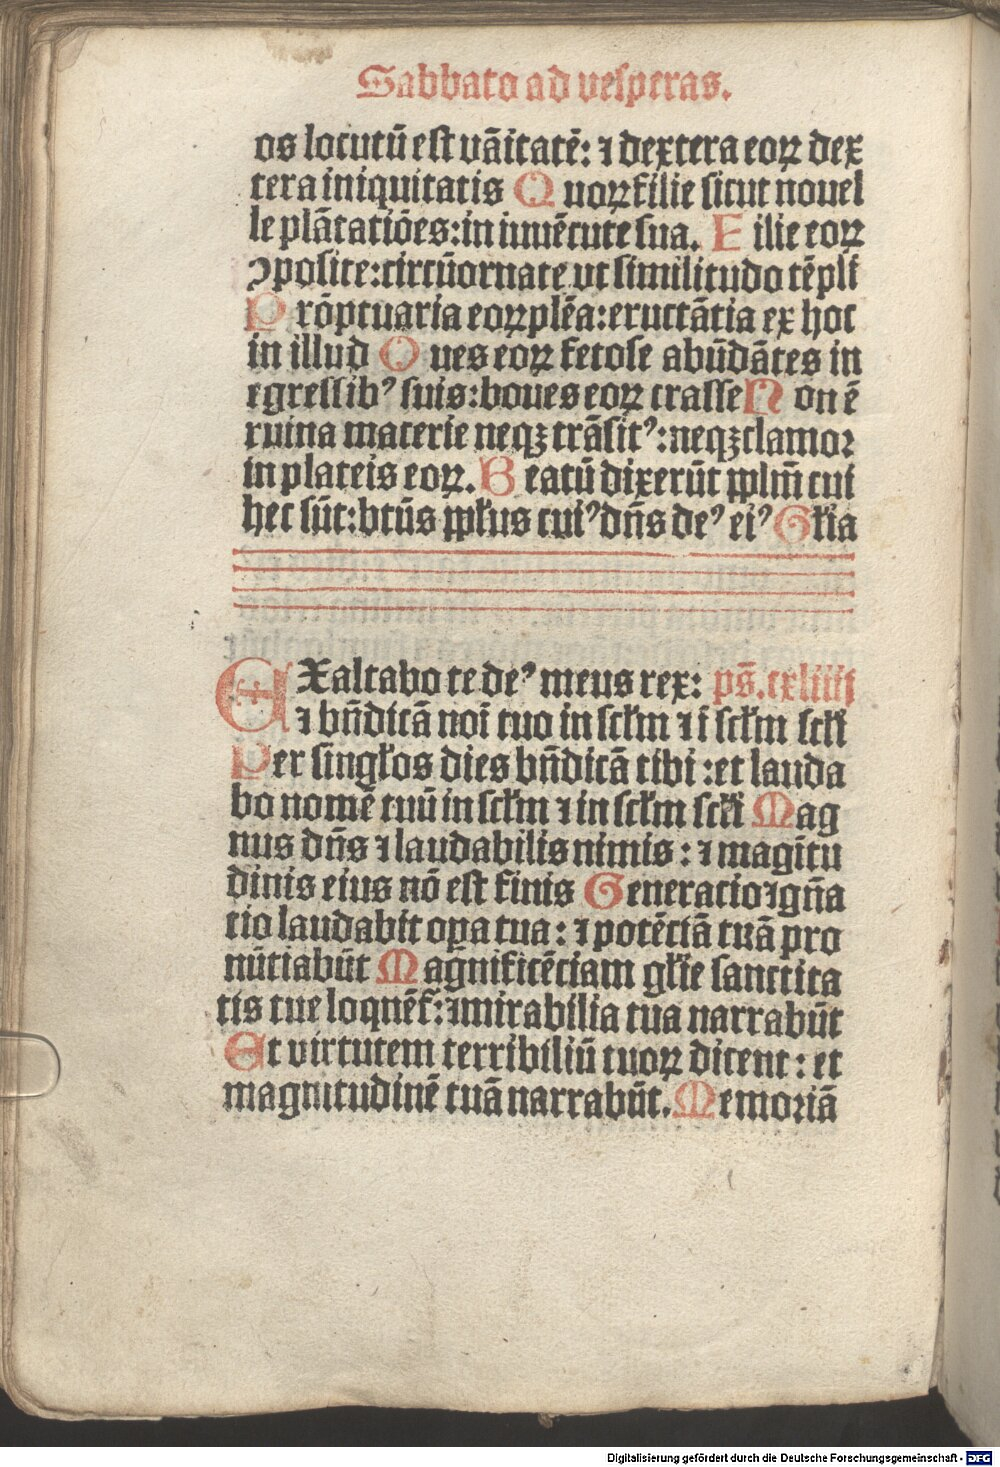 Sabbato ad vesperas.
os locutū est vāitatē: ⁊ dextera eoꝝ dex
tera iniquitatis Quoꝝ filie sicut nouel
le plātatiōes: in iuuētute sua. Filie eoꝝ
ꝯposite: circūornate ut similitudo tēpli
Prōptuaria eoꝝ plēa: eructātia ex hoc
in illud Oues eoꝝ fetose abūdātes in
egressibꝰ suis: boues eoꝝ crasse Non ē
ruina macerie neqꝫ trāsitꝰ: neqꝫ clamor
in plateis eoꝝ. Beatū dixerūt pplm̄ cui
hec sūt: btūs ppłus cuiꝰ dn̄s deꝰ eiꝰ Głia
EXaltabo te deꝰ meus rex: ps̄. cxliiii
⁊ bn̄dicā noī tuo in scłm ⁊ ī scłm scłi
Per singłos dies bn̄dicā tibi: et lauda
bo nomē tuū in scłm ⁊ in scłm scłi Mag
nus dn̄s ⁊ laudabilis nimis: ⁊ magītu
dinis eius nō est finis Generatio ⁊ gn̄a
tio laudabit oꝑa tua: ⁊ potētiā tuā pro
nūtiabūt Magnificētiam głie sanctita
tis tue loquēt̄: ⁊ mirabilia tua narrabūt
Et virtutem terribiliū tuoꝝ dicent: et
magnitudinē tuā narrabūt. Memoriā
Digitalisierung gefördert durch die Deutsche Forschungsgemeinschaft - DFG